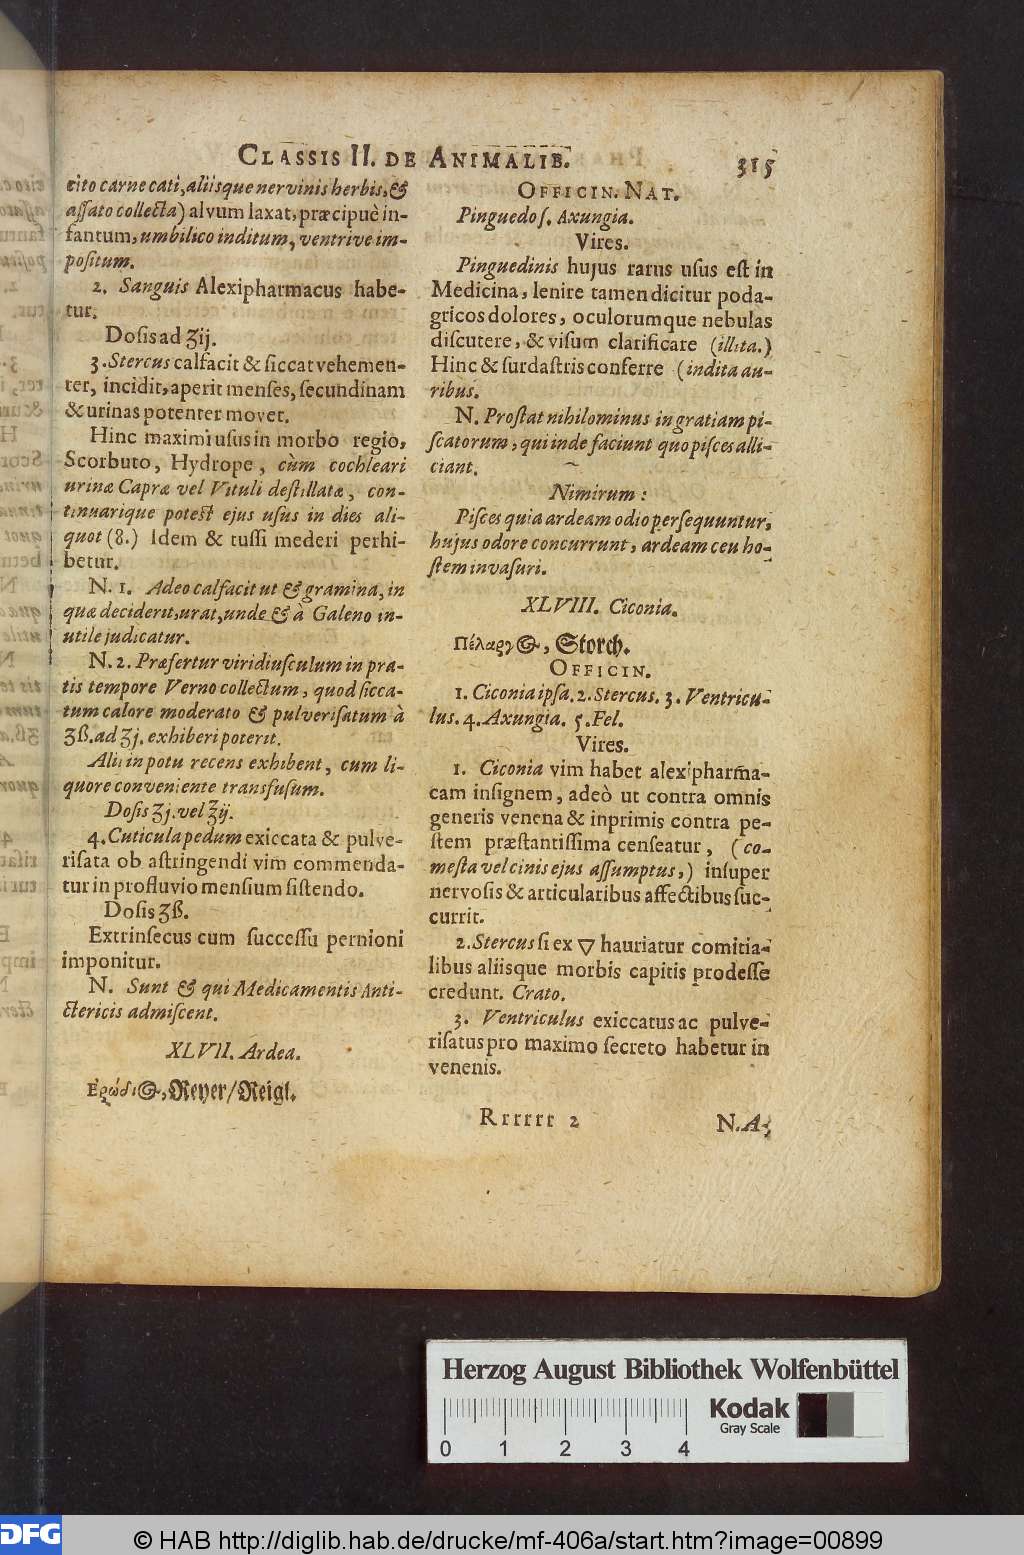 CLASSIS II. DE ANIMALIB. 315
cito carne cati, aliisque nervinis herbis, &
assato collecta) alvum laxat, præcipuè in-
fantum, umbilico inditum, ventrive im-
positum.
2. Sanguis Alexipharmacus habe-
tur.
Dosis ad ʒij.
3. Stercus calfacit & siccat vehemen-
ter, incidit, aperit menses, secundinam
& urinas potenter movet.
Hinc maximi usus in morbo regio,
Scorbuto, Hydrope, cùm cochleari
urinæ Capræ vel Vituli destillatæ, con-
tinuarique potest ejus usus in dies ali-
quot (8.) Idem & tussi mederi perhi-
betur.
N. 1. Adeo calfacit ut & gramina, in
quæ deciderit, urat, unde & à Galeno in-
utile judicatur.
N. 2. Præfertur viridiusculum in pra-
tis tempore Verno collectum, quod sicca-
tum calore moderato & pulverisatum à
ʒß. ad ʒj. exhiberi poterit.
Alii in potu recens exhibent, cum li-
quore conveniente transfusum.
Dosis ʒj. vel ʒij.
4. Cuticula pedum exiccata & pulve-
risata ob astringendi vim commenda-
tur in profluvio mensium sistendo.
Dosis ʒß.
Extrinsecus cum successu pernioni
imponitur.
N. Sunt & qui Medicamentis Anti-
ctericis admiscent.
XLVII. Ardea.
Ἐρώδιος, Reyer/Reigl.
OFFICIN. NAT.
Pinguedo s. Axungia.
Vires.
Pinguedinis hujus rarus usus est in
Medicina, lenire tamen dicitur poda-
gricos dolores, oculorumque nebulas
discutere, & visum clarificare (illita.)
Hinc & surdastris conferre (indita au-
ribus.
N. Prostat nihilominus in gratiam pi-
scatorum, qui inde faciunt quo pisces alli-
ciant.
Nimirum:
Pisces quia ardeam odio persequuntur,
hujus odore concurrunt, ardeam ceu ho-
stem invasuri.
XLVIII. Ciconia.
Πέλαργος, Storch.
OFFICIN.
1. Ciconia ipsa. 2. Stercus. 3. Ventricu-
lus. 4. Axungia. 5. Fel.
Vires.
1. Ciconia vim habet alexipharma-
cam insignem, adeò ut contra omnis
generis venena & inprimis contra pe-
stem præstantissima censeatur, (co-
mesta vel cinis ejus assumptus,) insuper
nervosis & articularibus affectibus suc-
currit.
2. Stercus si ex 🜄 hauriatur comitia-
libus aliisque morbis capitis prodesse
credunt. Crato.
3. Ventriculus exiccatus ac pulve-
risatus pro maximo secreto habetur in
venenis.
Rrrrrr 2 N. A-
Herzog August Bibliothek Wolfenbüttel
0 1 2 3 4
Kodak
Gray Scale
DFG
© HAB http://diglib.hab.de/drucke/mf-406a/start.htm?image=00899